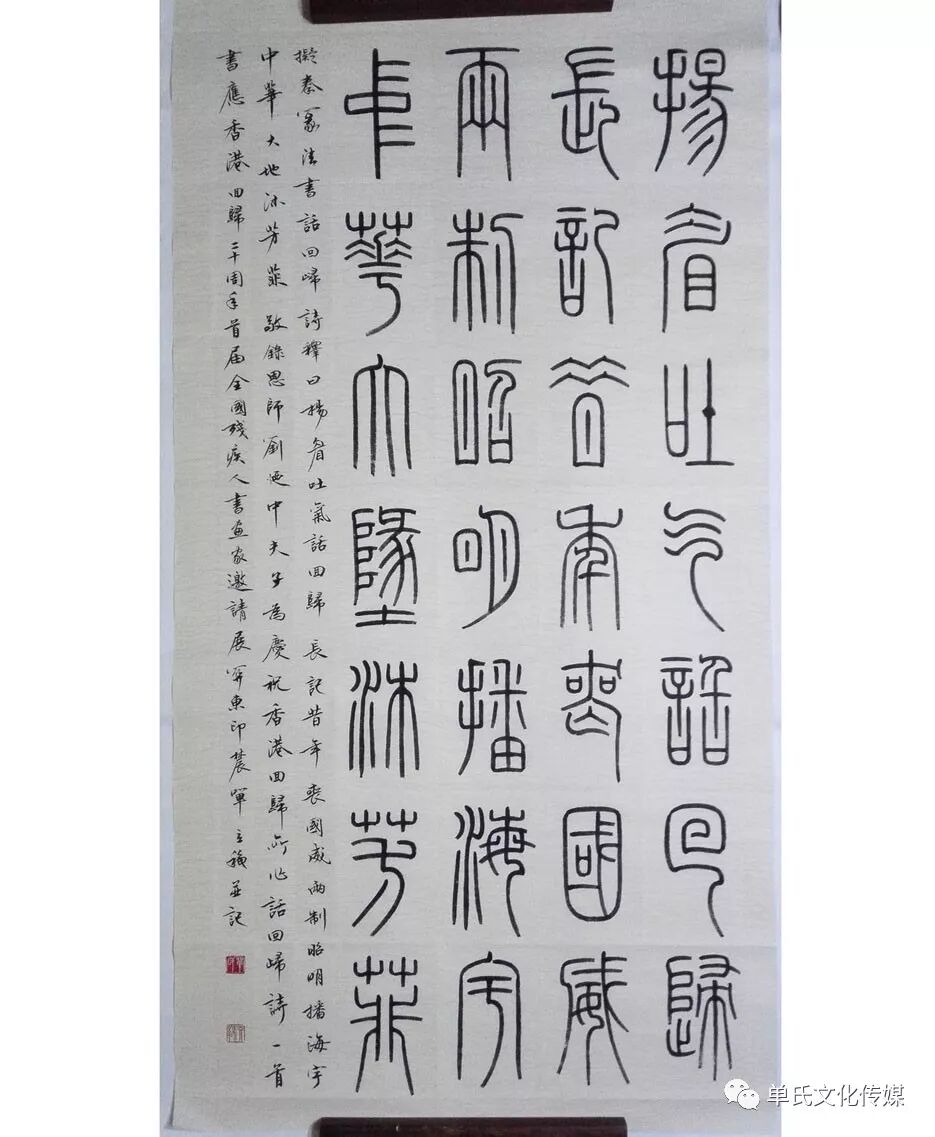 揚眉吐气話回歸
長記昔年喪國威
兩制昭明播海宇
中華大墬沐芳菲
擬秦篆法書話回歸詩釋曰揚眉吐氣話回歸長記昔年喪國威兩制昭明播海宇
中華大地沐芳菲敬錄恩師劉延中夫子為慶祝香港回歸所作話回歸詩一首
書應香港回歸二十周年首届全國殘疾人書畫家邀請展東印農單立並記
单氏文化传媒